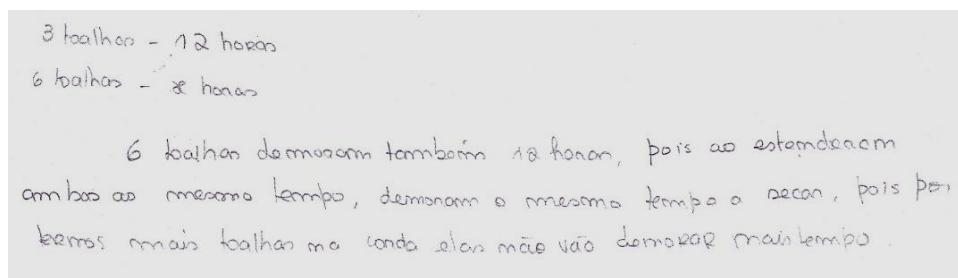 3 toalhas - 12 horas
6 toalhas - x horas
6 toalhas demoram também 12 horas, pois ao estenderem
ambas ao mesmo tempo, demoram o mesmo tempo a secar, pois por
termos mais toalhas na corda elas não vão demorar mais tempo.